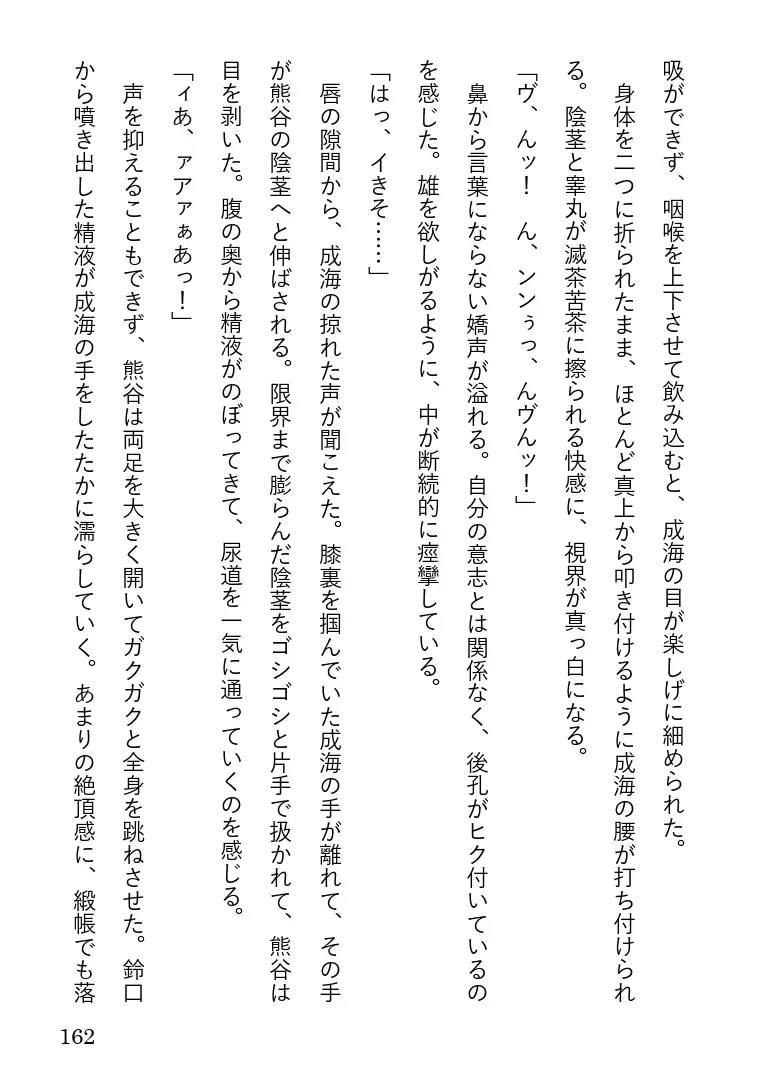 吸ができず、咽喉を上下させて飲み込むと、成海の目が楽しげに細められた。
身体を二つに折られたまま、ほとんど真上から叩き付けるように成海の腰が打ち付けられ
る。陰茎と睾丸が滅茶苦茶に擦られる快感に、視界が真っ白になる。
「ヴ、んッ！　ん、ンンぅっ、んヴんッ！」
鼻から言葉にならない嬌声が溢れる。自分の意志とは関係なく、後孔がヒク付いているの
を感じた。雄を欲しがるように、中が断続的に痙攣している。
「はっ、イきそ……」
唇の隙間から、成海の掠れた声が聞こえた。膝裏を掴んでいた成海の手が離れて、その手
が熊谷の陰茎へと伸ばされる。限界まで膨らんだ陰茎をゴシゴシと片手で扱かれて、熊谷は
目を剥いた。腹の奥から精液がのぼってきて、尿道を一気に通っていくのを感じる。
「ィあ、ァアァぁあっ！」
声を抑えることもできず、熊谷は両足を大きく開いてガクガクと全身を跳ねさせた。鈴口
から噴き出した精液が成海の手をしたたかに濡らしていく。あまりの絶頂感に、緞帳でも落
162